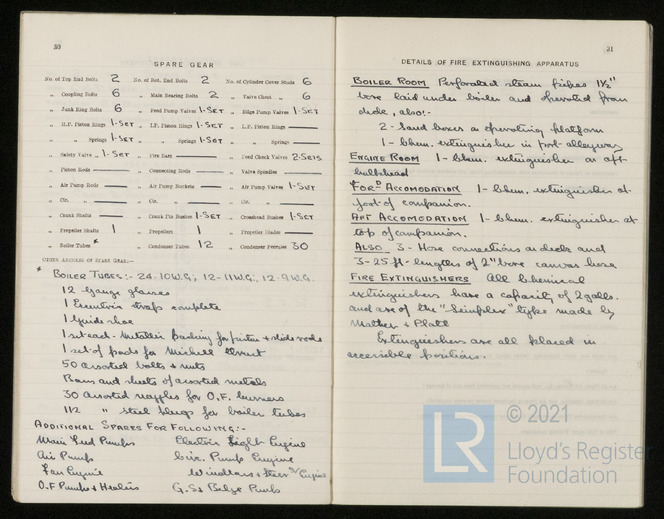 30
SPARE GEAR
No. of Top End Bolts 2 No. of Bot. End Bolts 2 No. of Cylinder Cover Studs 6
„ Coupling Bolts 6 „ Main Bearing Bolts 2 „ Valve Chest „ 6
„ Junk Ring Bolts 6 „ Feed Pump Valves 1-SET „ Bilge Pump Valves 1-SET
„ H.P. Piston Rings 1-SET „ I.P. Piston Rings 1-SET „ L.P. Piston Rings —
„ „ Springs 1-SET „ „ Springs 1-SET „ „ Springs —
„ Safety Valve „ 1-SET „ Fire Bars — „ Feed Check Valves 2-SETS
„ Piston Rods — „ Connecting Rods — „ Valve Spindles —
„ Air Pump Rods — „ Air Pump Buckets — „ Air Pump Valves 1-SET
„ Cir. „ — „ Cir. „ — „ Cir. „ —
„ Crank Shafts — „ Crank Pin Bushes 1-SET „ Crosshead Bushes 1-SET
„ Propeller Shafts 1 „ Propellers 1 „ Propeller Blades —
„ Boiler Tubes * „ Condenser Tubes 12 „ Condenser Ferrules 30
OTHER ARTICLES OF SPARE GEAR:—
* BOILER TUBES:- 24-10W.G, 12-11W.G., 12-9W.G.
12 Gauge glasses
1 Eccentric strap complete
1 Guide shoe
1 set each Metallic Packing for piston & slide rods
1 set of pads for Michell Thrust
50 assorted bolts & nuts
Bars and sheets of assorted metals
30 assorted nozzles for O.F. burners
112 „ steel plugs for boiler tubes
ADDITIONAL SPARES FOR FOLLOWING:-
Main Feed Pumps Electric Light Engine
Air Pump Circ. Pump Engine
Fan Engine Windlass & Steer Engine
O.F Pumps & Heaters G.S & Bilge Pump
31
DETAILS OF FIRE EXTINGUISHING APPARATUS
BOILER ROOM Perforated steam pipes 1½"
bore laid under boiler and operated from
deck, also:-
2 - Sand boxes on operating platform
1 - Chem. extinguisher in port alleyway
ENGINE ROOM 1 - Chem. extinguisher on aft
bulkhead
FORD ACCOMODATION 1 - Chem. extinguisher at
foot of companion.
AFT ACCOMODATION 1 - Chem. extinguisher at
top of companion.
ALSO 3 - Hose connections on deck and
3-25 ft. lengths of 2" bore canvas hose
FIRE EXTINGUISHERS All Chemical
extinguishers have a capacity of 2 galls.
and are of the "Simplex" type made by
Mather & Platt
Extinguishers are all placed in
accessible positions.
LR © 2021
Lloyd's Register
Foundation